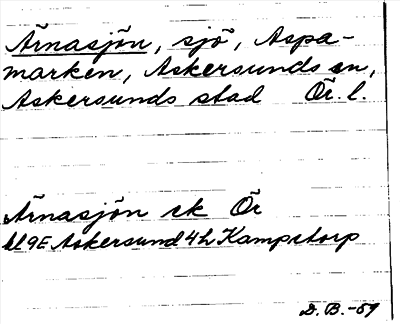 Ärnasjön, sjö, Aspa-
marken, Askersunds sn,
Askersunds stad Ör. l.
Ärnasjön rk Ör
bl 9E Askersund 4h Kampstorp
D. B. -59